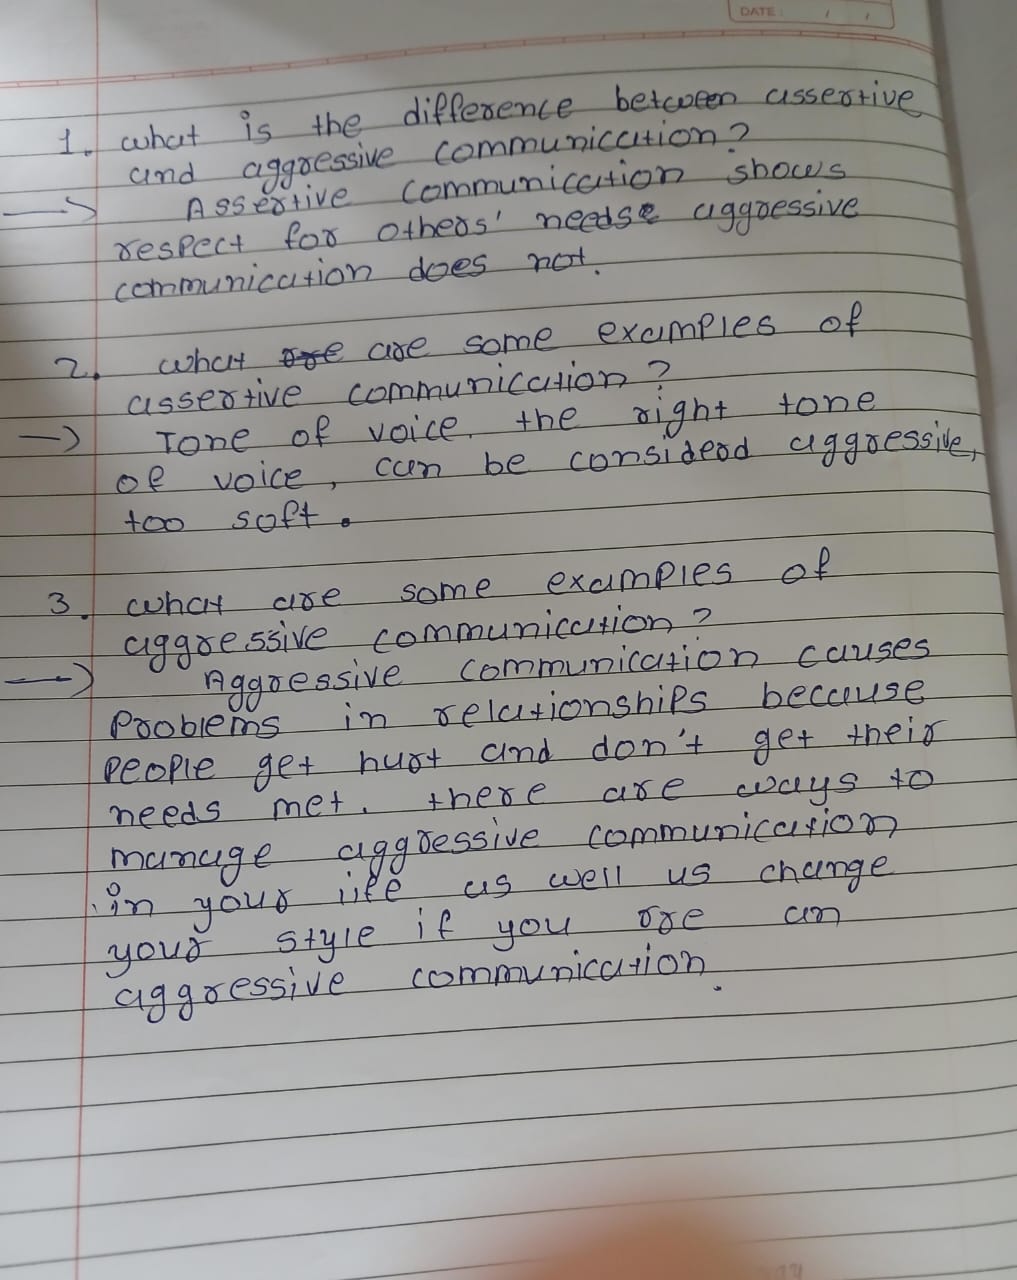 DATE : / /
1. what is the difference between assertive
and aggressive communication?
→ Assertive communication shows
respect for others' needs aggressive
communication does not.
2. what are are some examples of
assertive communication?
→ Tone of voice. the right tone
of voice, can be considerd aggressive,
too soft.
3. what are some examples of
aggressive communication?
→ Aggressive communication causes
Problems in relationships because
People get hurt and don't get their
needs met. there are ways to
manage aggressive communication
in your life as well us change
your style if you ore an
aggressive communication.